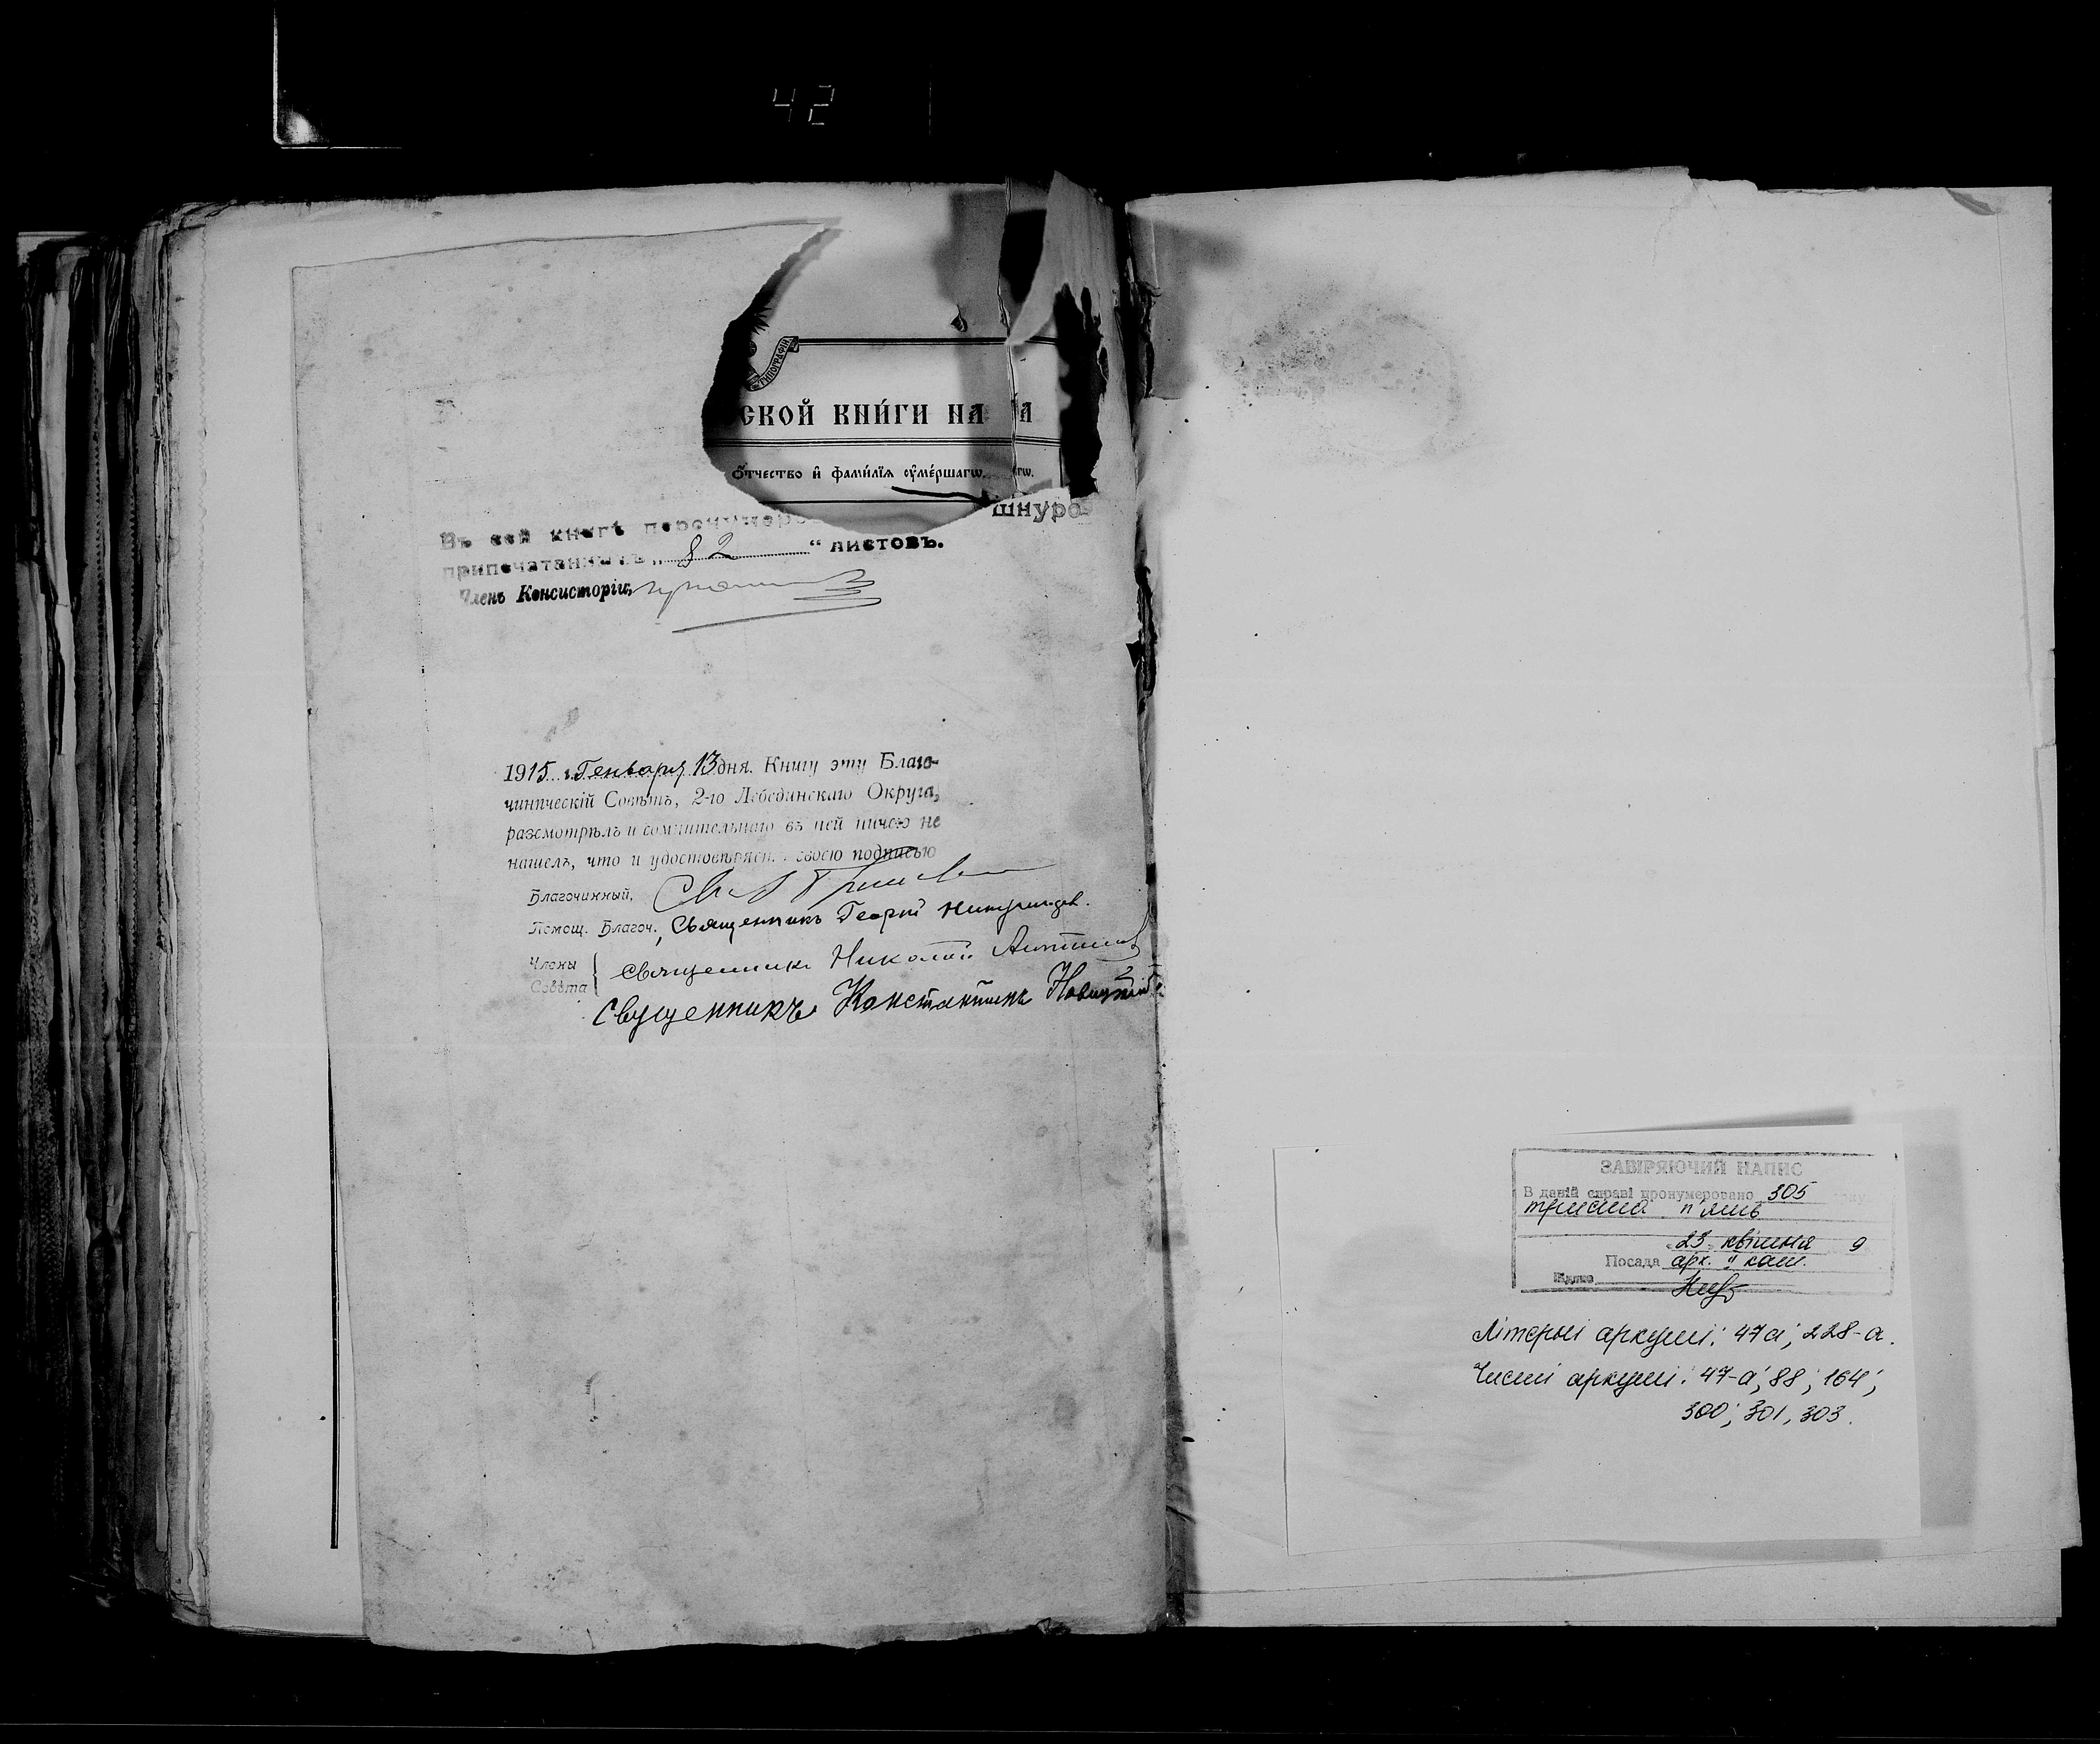 42
ТИПОГРАФІИ
СКОЙ КНИ́ГИ НА
ѻ҆́тчество и҆ фами́лїѧ ᲂу҆ме́ршагѡ.
Въ сей книгѣ перенумеро шнуро
припечатанныхъ „ 82 “ листовъ.
Членъ Консисторіи,
1915 г. Генваря 13 дня. Книгу эту Благо-
чинническій Совѣтъ, 2-го Лебединскаго Округа,
разсмотрѣлъ и сомнительнаго въ ней ничего не
нашелъ, что и удостовѣряетъ своею подписью
Благочинный,
Помощ. Благоч., Священникъ Георгій
Члены
Совѣта
священникъ Николай
Священникъ Константинъ Новицкій
ЗАВІРЯЮЧИЙ НАПИС
В даній справі пронумеровано 305
триста п'ять
23 квітня 9
Посада арх. II кат.
Літерні аркуші: 47а; 228-а.
Чисті аркуші: 47-а; 88; 164;
300; 301, 303.